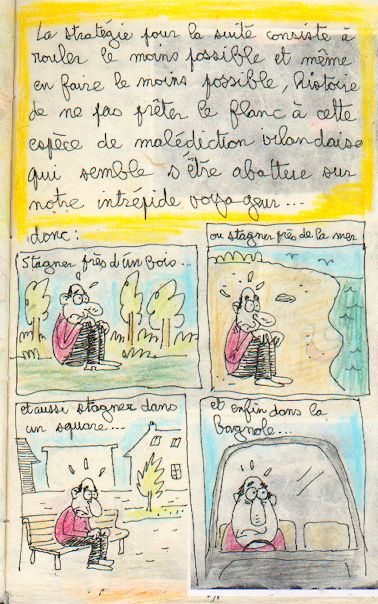 La stratégie pour la suite consiste à
rouler le moins possible et même
en faire le moins possible, histoire
de ne pas prêter le flanc à cette
espèce de malédiction irlandaise
qui semble s'être abattue sur
notre intrépide voyageur...
donc:
Stagner près d'un bois...
ou stagner près de la mer
et aussi stagner dans
un square...
et enfin dans la
Bagnole...